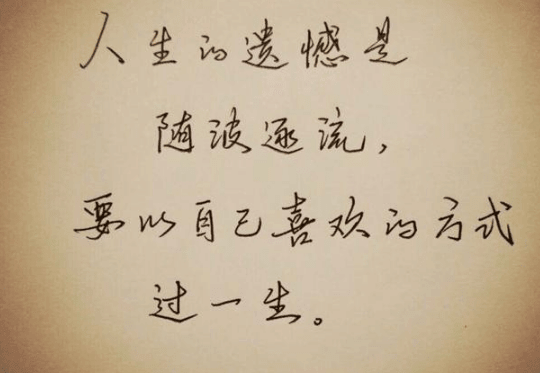 人生的遗憾是
随波逐流,
要以自己喜欢的方式
过一生。